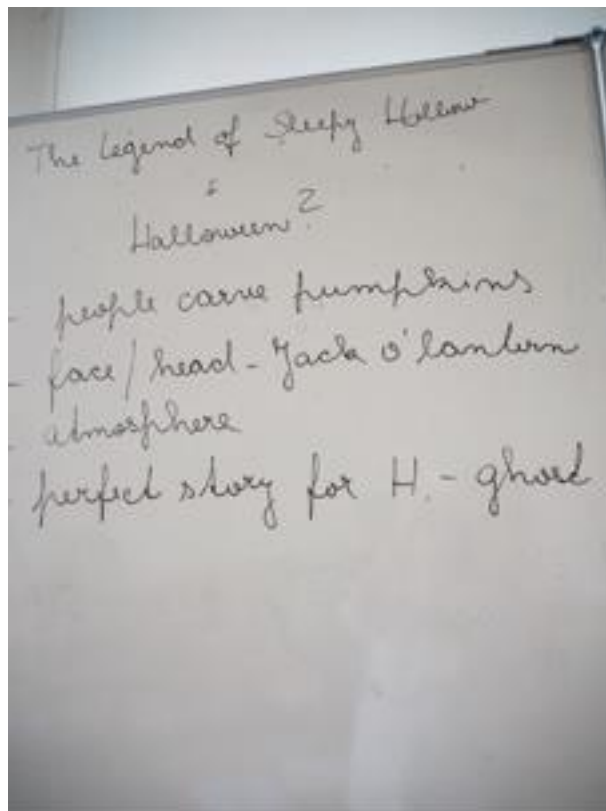 The Legend of Sleepy Hollow
&
Halloween?
- people carve pumpkins
- face/head - Jack o'lantern
- atmosphere
- perfect story for H. - ghost